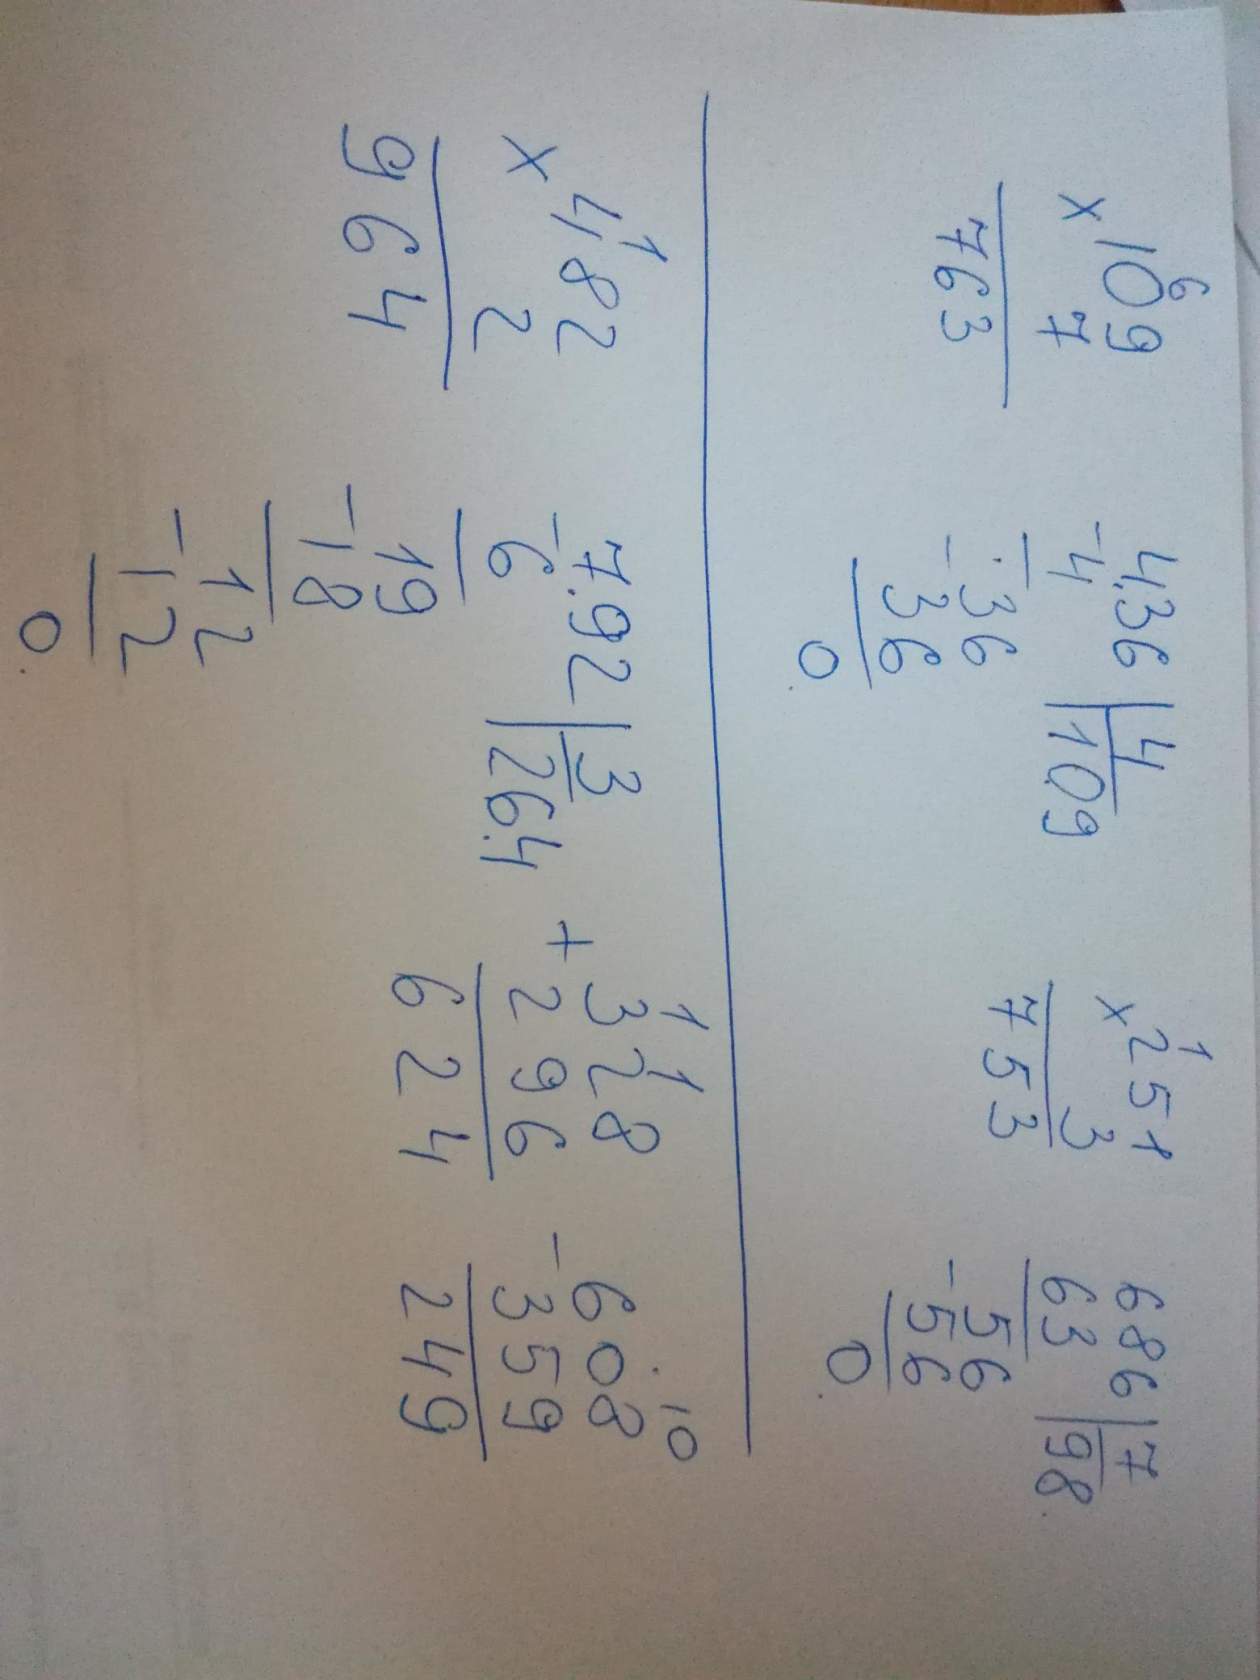 6
×109
7
763
4.36 | 4
-4 | 109
36
-36
0
1
×251
3
753
686 | 7
63 | 98
56
-56
0
1
×482
2
964
7.92 | 3
-6 | 264
19
-18
12
-12
0
1 1
+328
296
624
10
-608
359
249